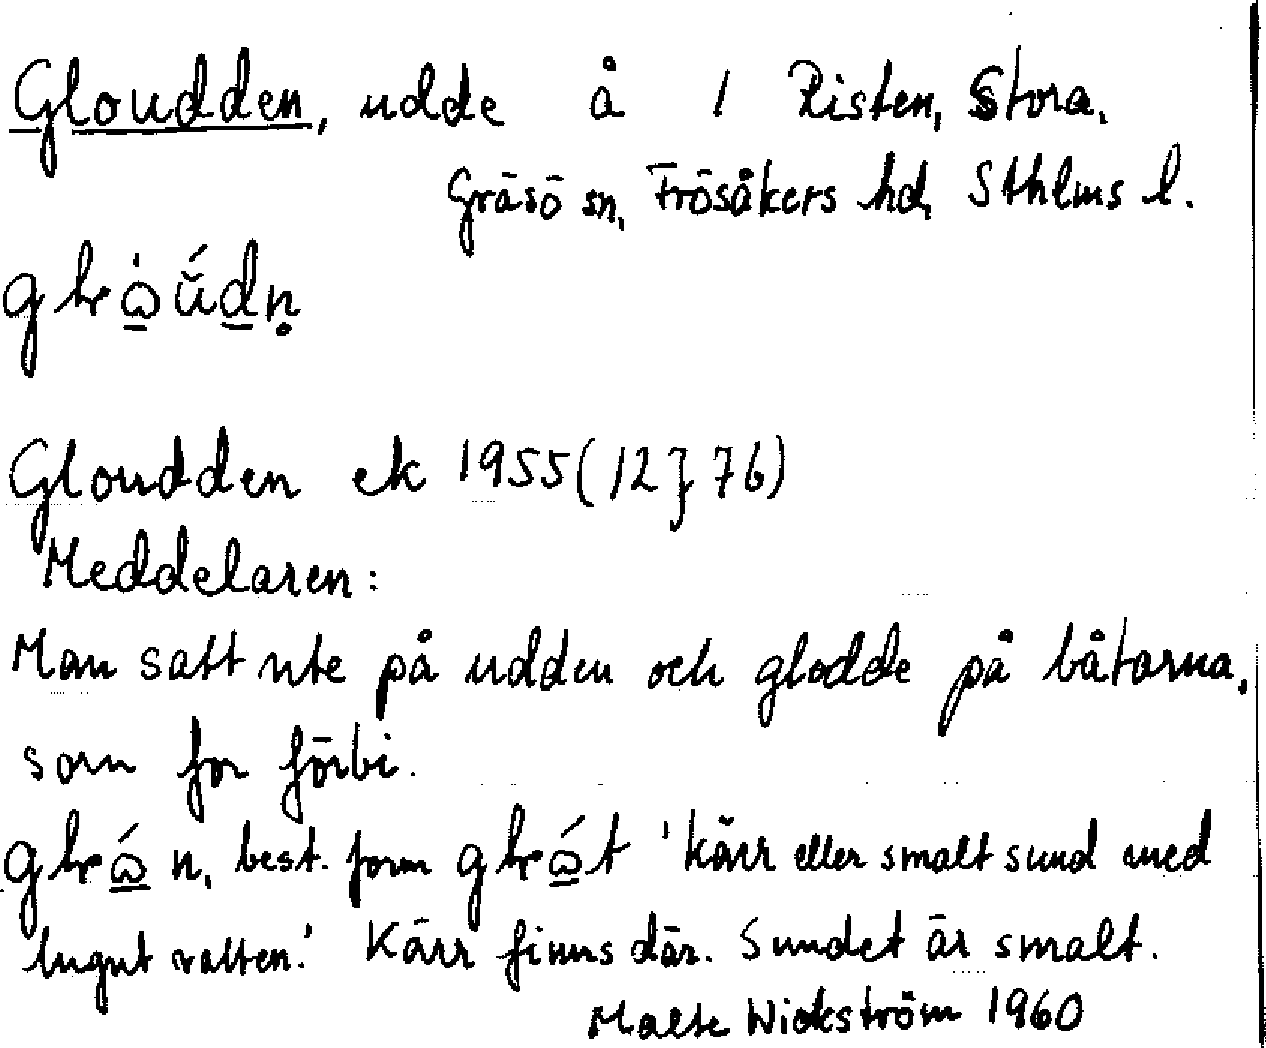 Gloudden, udde å 1 Risten, Stora,
Gräsö sn, Frösåkers hd, Sthlms l.
Gloudden ek 1955 (12J 7b)
Meddelaren:
Man satt ute på udden och glodde på båtarna,
som for förbi.
n, best. form 'kärr eller smalt sund med
lugnt vatten.' Kärr finns där. Sundet är smalt.
Malte Wickström 1960